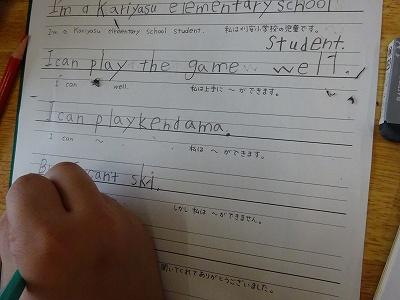 I'm a Kariyasu elementary school
I'm a Kariyasu elementary school student. 私は刈安小学校の児童です。
student.
I can play the game well.
I can 〜 well. 私は上手に 〜 ができます。
I can playkendama.
I can 〜 私は 〜 ができます。
cant ski.
しかし 私は 〜ができません。
聞いてくれてありがとうございました。